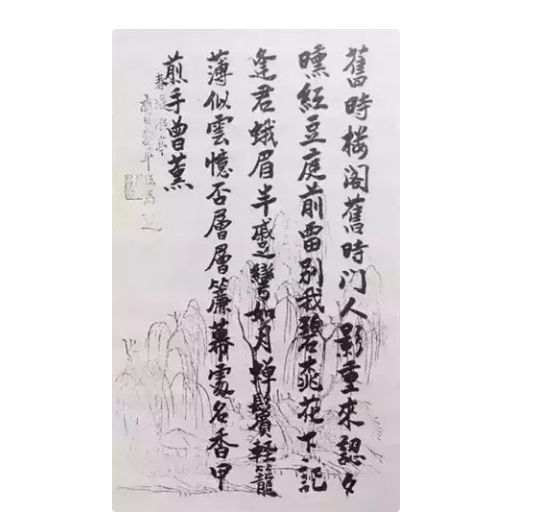 舊時楼阁舊時门人影重來認夕
曛紅豆庭前畱别我碧桃花下記
逢君蛾眉半蹙彎如月蝉鬢輕籠
薄似雲憶否層層簾幕處名香甲
煎手曾薰